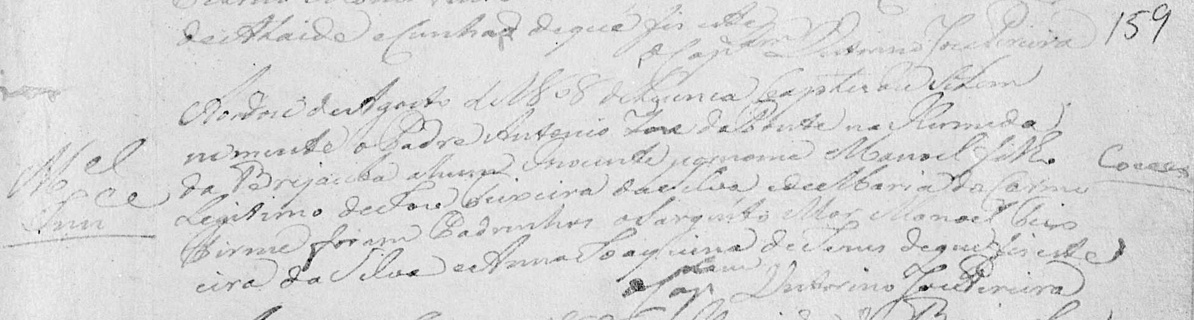 de Ataide e Cunha de que fis este
159
o Capam Vitorino Joze Pereira
Aos doze de Agosto de 1808 de Licenca Baptizou Solem
nemente o Padre Antonio Joze da Ponte na Hermida
da Brijauba ahum Inocente por nome Manoel filho
Legitimo de Joze Teixeira da Silva e de Maria do Carmo
foram Padrinhos o Sargento Mor Manoel Teix
eira da Silva e Anna Joaquina de Jesus de que fis este
o Capam Vitorino Joze Pereira
Mel
Inn